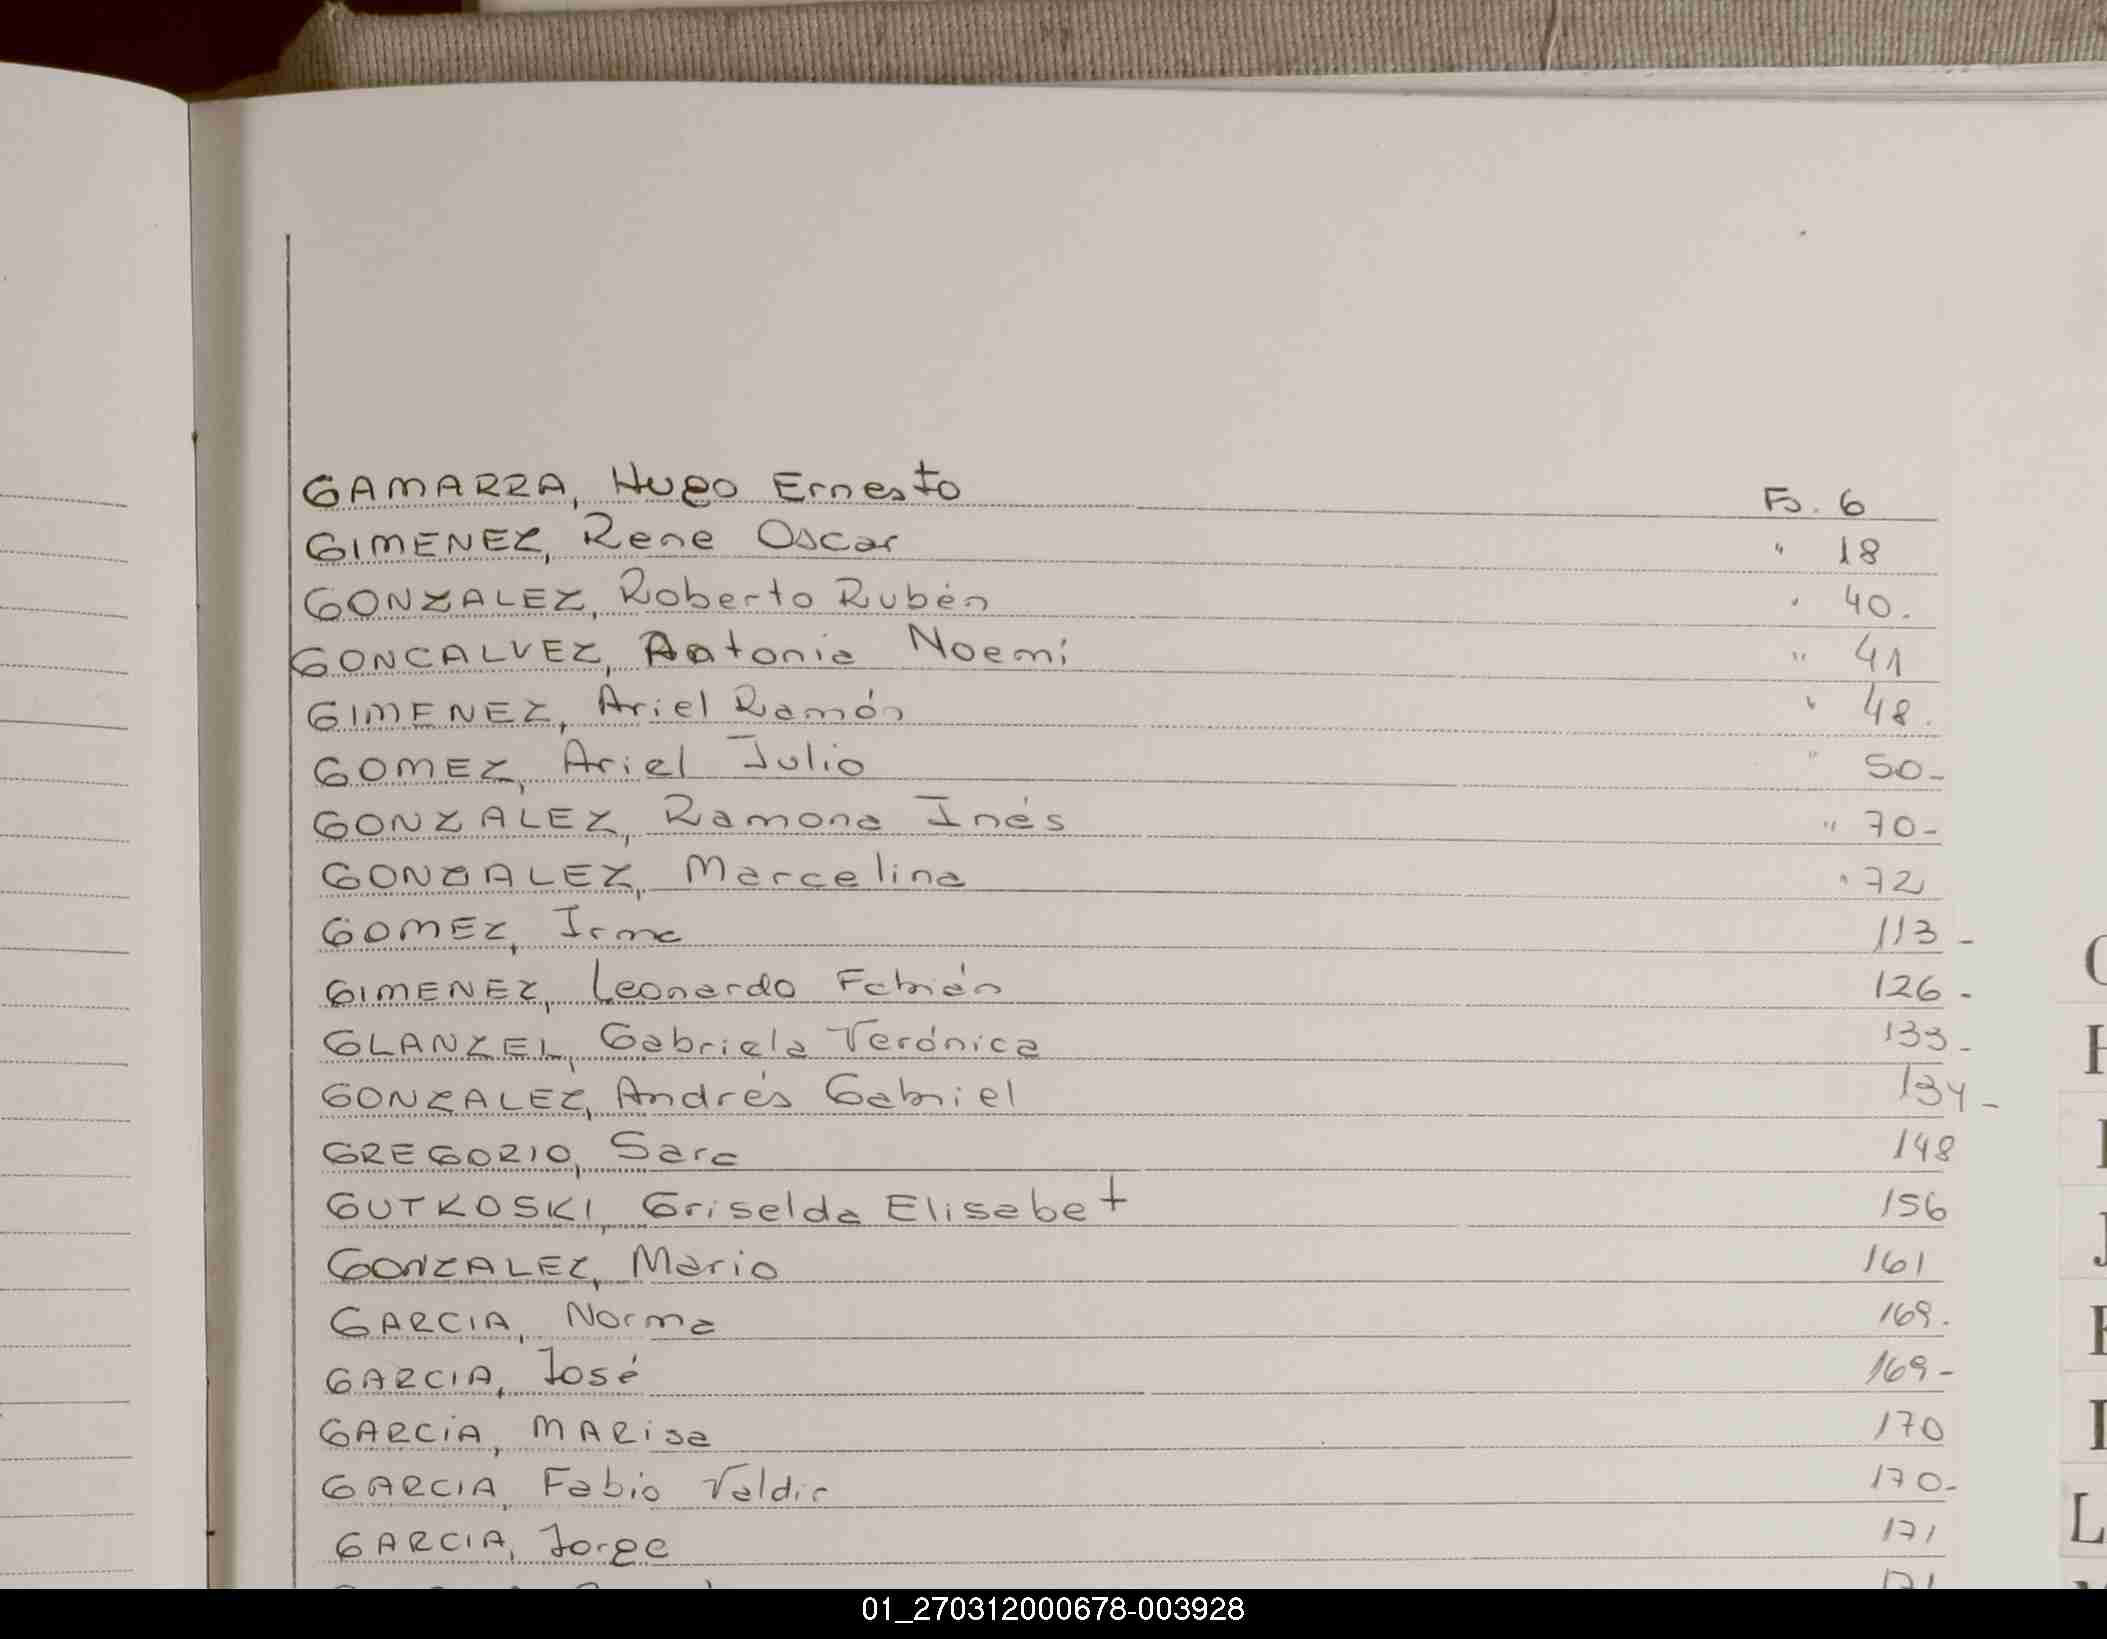 GAMARRA, Hugo Ernesto Fs. 6
GIMENEZ, Rene Oscar " 18
GONZALEZ, Roberto Rubén " 40.
GONCALVEZ, Antonia Noemi " 41
GIMENEZ, Ariel Ramón " 48.
GOMEZ, Ariel Julio " 50-
GONZALEZ, Ramona Inés " 70-
GONZALEZ, Marcelina " 72
GOMEZ, Irma 113-
GIMENEZ, Leonardo Fabián 126-
GLANZEL, Gabriela Verónica 133-
GONZALEZ, Andrés Gabriel 134-
GREGORIO, Sara 148
GUTKOSKI, Griselda Elisabet 156
GONZALEZ, Mario 161
GARCIA, Norma 169.
GARCIA, José 169-
GARCIA, MARisa 170
GARCIA, Fabio Valdir 170-
GARCIA, Jorge 171
171
J
L
01_270312000678-003928